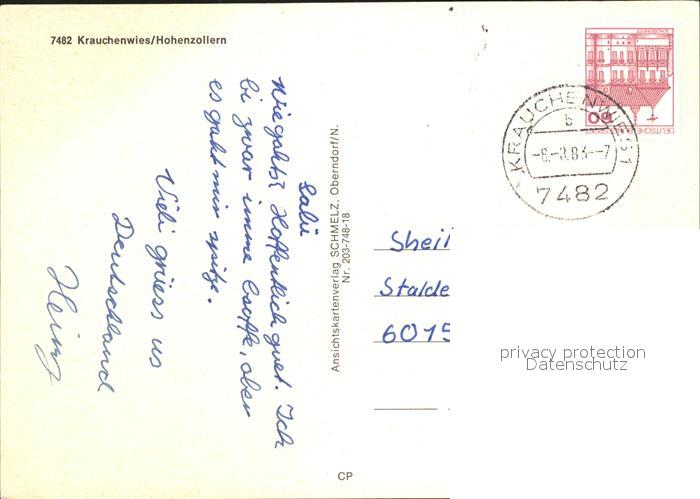 7482 Krauchenwies/Hohenzollern
Salü
Wie gahts? Hoffentlich guet. Ich
bi zwar imme, aber
es gaht mir spitze.
Vieli grüess us
Deutschland
Heinz
Ansichtskartenverlag SCHMELZ, Oberndorf/N.
Nr. 203-748-18
CP
KRAUCHENWIES 1
b
-8.-3.83--7
7482
60
DEUTSCHE BUNDESPOST
Sheil
Stalde
6015
privacy protection
Datenschutz